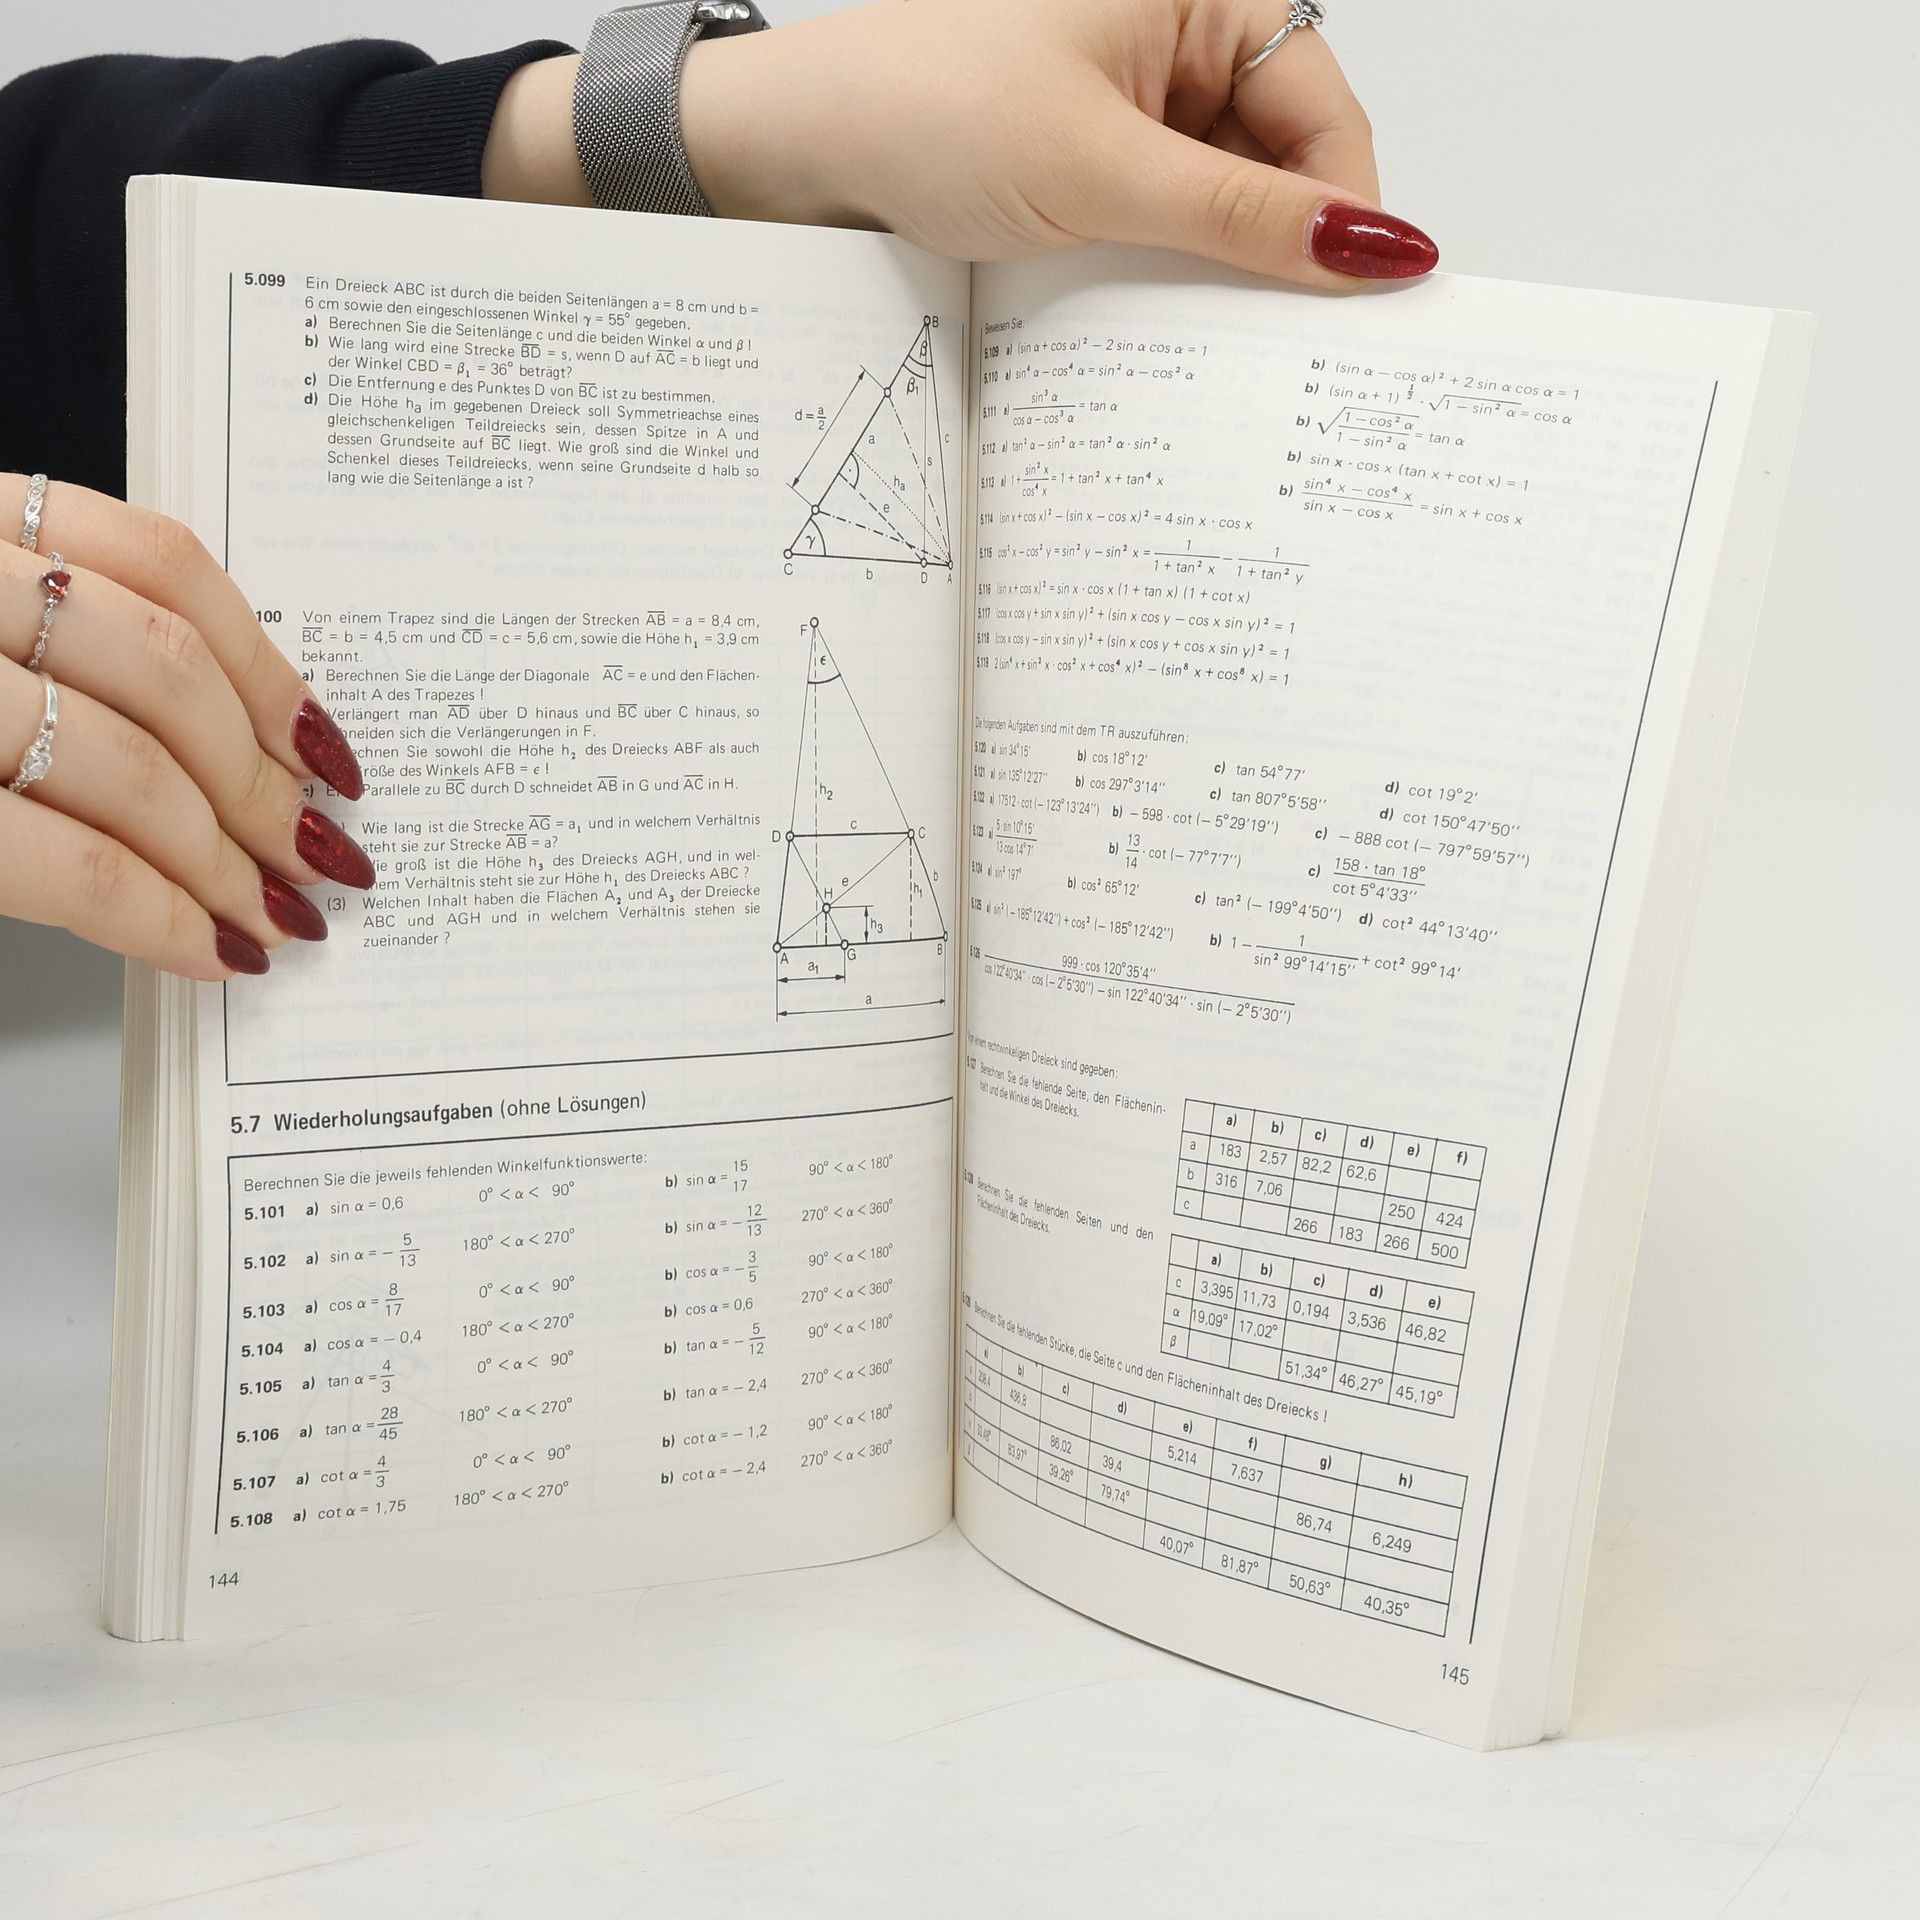 5.099 Ein Dreieck ABC ist durch die beiden Seitenlängen a = 8 cm und b =
6 cm sowie den eingeschlossenen Winkel γ = 55° gegeben.
a) Berechnen Sie die Seitenlänge c und die beiden Winkel α und β !
b) Wie lang wird eine Strecke B̅D̅ = s, wenn D auf A̅C̅ = b liegt und
der Winkel CBD = β₁ = 36° beträgt?
c) Die Entfernung e des Punktes D von B̅C̅ ist zu bestimmen.
d) Die Höhe hₐ im gegebenen Dreieck soll Symmetrieachse eines
gleichschenkeligen Teildreiecks sein, dessen Spitze in A und
dessen Grundseite auf B̅C̅ liegt. Wie groß sind die Winkel und
Schenkel dieses Teildreiecks, wenn seine Grundseite d halb so
lang wie die Seitenlänge a ist ?
B
β
β₁
d = a/2
a
c
s
hₐ
e
γ
C
b
D
A
100 Von einem Trapez sind die Längen der Strecken A̅B̅ = a = 8,4 cm,
B̅C̅ = b = 4,5 cm und C̅D̅ = c = 5,6 cm, sowie die Höhe h₁ = 3,9 cm
bekannt.
a) Berechnen Sie die Länge der Diagonale A̅C̅ = e und den Flächen-
inhalt A des Trapezes !
Verlängert man A̅D̅ über D hinaus und B̅C̅ über C hinaus, so
neiden sich die Verlängerungen in F.
echnen Sie sowohl die Höhe h₂ des Dreiecks ABF als auch
röße des Winkels AFB = ϵ !
c) E Parallele zu B̅C̅ durch D schneidet A̅B̅ in G und A̅C̅ in H.
Wie lang ist die Strecke A̅G̅ = a₁ und in welchem Verhältnis
steht sie zur Strecke A̅B̅ = a?
ie groß ist die Höhe h₃ des Dreiecks AGH, und in wel-
hem Verhältnis steht sie zur Höhe h₁ des Dreiecks ABC ?
(3) Welchen Inhalt haben die Flächen A₂ und A₃ der Dreiecke
ABC und AGH und in welchem Verhältnis stehen sie
zueinander ?
F
ϵ
h₂
D
c
C
e
b
H
h₁
h₃
A
G
B
a₁
a
5.7 Wiederholungsaufgaben (ohne Lösungen)
Berechnen Sie die jeweils fehlenden Winkelfunktionswerte:
5.101 a) sin α = 0,6 0° < α < 90° b) sin α = 15/17 90° < α < 180°
5.102 a) sin α = − 5/13 180° < α < 270° b) sin α = − 12/13 270° < α < 360°
5.103 a) cos α = 8/17 0° < α < 90° b) cos α = − 3/5 90° < α < 180°
5.104 a) cos α = − 0,4 180° < α < 270° b) cos α = 0,6 270° < α < 360°
5.105 a) tan α = 4/3 0° < α < 90° b) tan α = − 5/12 90° < α < 180°
5.106 a) tan α = 28/45 180° < α < 270° b) tan α = − 2,4 270° < α < 360°
5.107 a) cot α = 4/3 0° < α < 90° b) cot α = − 1,2 90° < α < 180°
5.108 a) cot α = 1,75 180° < α < 270° b) cot α = − 2,4 270° < α < 360°
144
Beweisen Sie:
5.109 a) (sin α + cos α)² − 2 sin α cos α = 1 b) (sin α − cos α)² + 2 sin α cos α = 1
5.110 a) sin⁴ α − cos⁴ α = sin² α − cos² α b) (sin α + 1) ½ · √(1 − sin² α) = cos α
5.111 a) sin³ α / (cos α − cos³ α) = tan α b) √((1 − cos² α) / (1 − sin² α)) = tan α
5.112 a) tan² α − sin² α = tan² α · sin² α b) sin x · cos x (tan x + cot x) = 1
5.113 a) 1 + sin² x / cos⁴ x = 1 + tan² x + tan⁴ x b) (sin⁴ x − cos⁴ x) / (sin x − cos x) = sin x + cos x
5.114 (sin x + cos x)² − (sin x − cos x)² = 4 sin x · cos x
5.115 cos² x − cos² y = sin² y − sin² x = 1/(1 + tan² x) − 1/(1 + tan² y)
5.116 (sin x + cos x)² = sin x · cos x (1 + tan x) (1 + cot x)
5.117 (cos x cos y + sin x sin y)² + (sin x cos y − cos x sin y)² = 1
5.118 (cos x cos y − sin x sin y)² + (sin x cos y + cos x sin y)² = 1
5.119 2 (sin⁴ x + sin² x · cos² x + cos⁴ x)² − (sin⁸ x + cos⁸ x) = 1
Die folgenden Aufgaben sind mit dem TR auszuführen:
5.120 a) sin 34°15′ b) cos 18°12′ c) tan 54°77′ d) cot 19°2′
5.121 a) sin 135°12′27″ b) cos 297°3′14″ c) tan 807°5′58″ d) cot 150°47′50″
5.122 a) 17512 · cot (− 123°13′24″) b) − 598 · cot (− 5°29′19″) c) − 888 cot (− 797°59′57″)
5.123 a) 5 · sin 10°15′ / 13 cos 14°7′ b) 13/14 · cot (− 77°7′7″) c) 158 · tan 18° / cot 5°4′33″
5.124 a) sin² 197° b) cos² 65°12′ c) tan² (− 199°4′50″) d) cot² 44°13′40″
5.125 a) sin² (− 185°12′42″) + cos² (− 185°12′42″) b) 1 − 1/(sin² 99°14′15″) + cot² 99°14′
5.126 999 · cos 120°35′4″ / (cos 122°40′34″ · cos (− 2°5′30″) − sin 122°40′34″ · sin (− 2°5′30″))
Von einem rechtwinkeligen Dreieck sind gegeben:
5.127 Berechnen Sie die fehlende Seite, den Flächenin-
halt und die Winkel des Dreiecks.
a) b) c) d) e) f)
a 183 2,57 82,2 62,6
b 316 7,06 250 424
c 266 183 266 500
5.128 Berechnen Sie die fehlenden Seiten und den
Flächeninhalt des Dreiecks.
a) b) c) d) e)
c 3,395 11,73 0,194 3,536 46,82
α 19,09° 17,02°
β 51,34° 46,27° 45,19°
5.129 Berechnen Sie die fehlenden Stücke, die Seite c und den Flächeninhalt des Dreiecks !
a) b) c) d) e) f) g) h)
436,8 5,214 7,637
86,02 39,4 86,74 6,249
83,97° 39,26° 79,74°
40,07° 81,87° 50,63° 40,35°
145